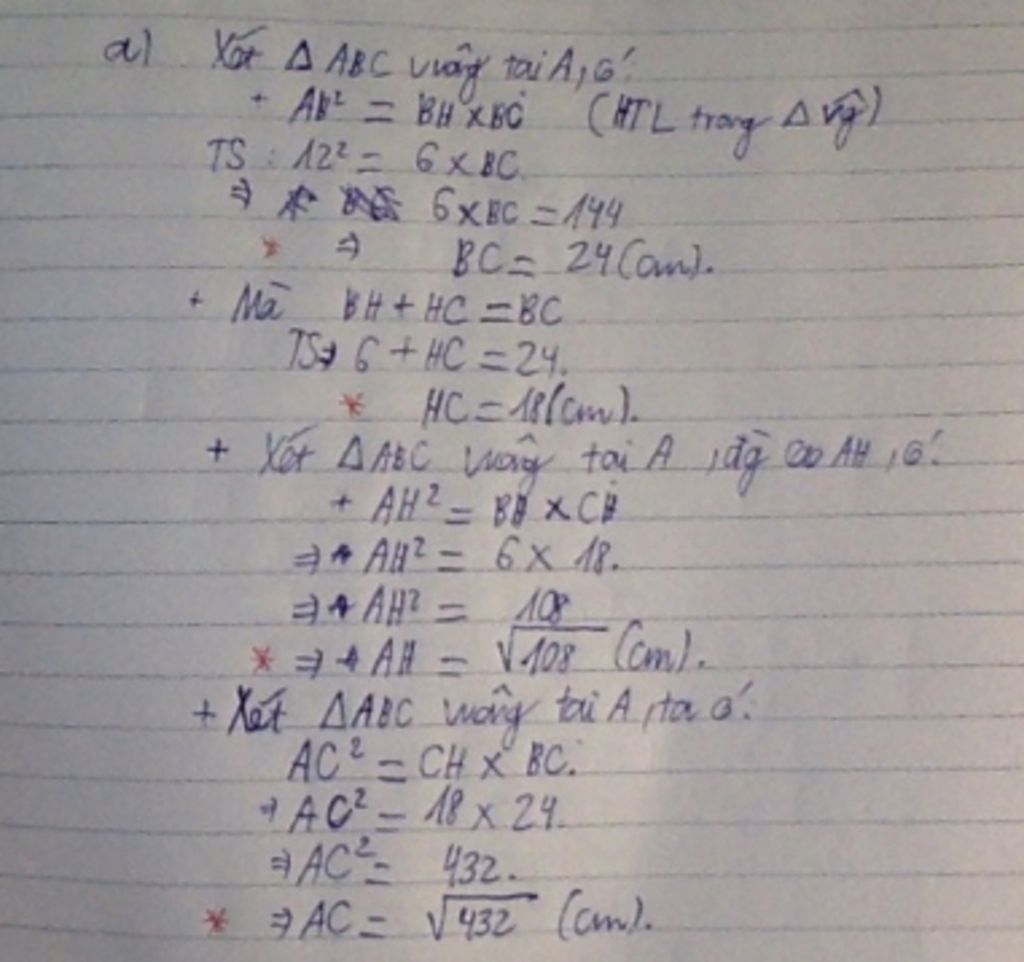 a) Xét Δ ABC vuông tại A, có:
+ AB² = BH x BC (HTL trong Δ vg)
TS : 12² = 6 x BC
⇒ 6 x BC = 144
* ⇒ BC = 24 (cm).
+ Mà BH + HC = BC
TS ⇒ 6 + HC = 24.
* HC = 18 (cm).
+ Xét Δ ABC vuông tại A, đg cao AH, có:
+ AH² = BH x CH
⇒ AH² = 6 x 18.
⇒ AH² = 108
* ⇒ AH = √108 (cm).
+ Xét Δ ABC vuông tại A, ta có:
AC² = CH x BC.
⇒ AC² = 18 x 24.
⇒ AC² = 432.
* ⇒ AC = √432 (cm).